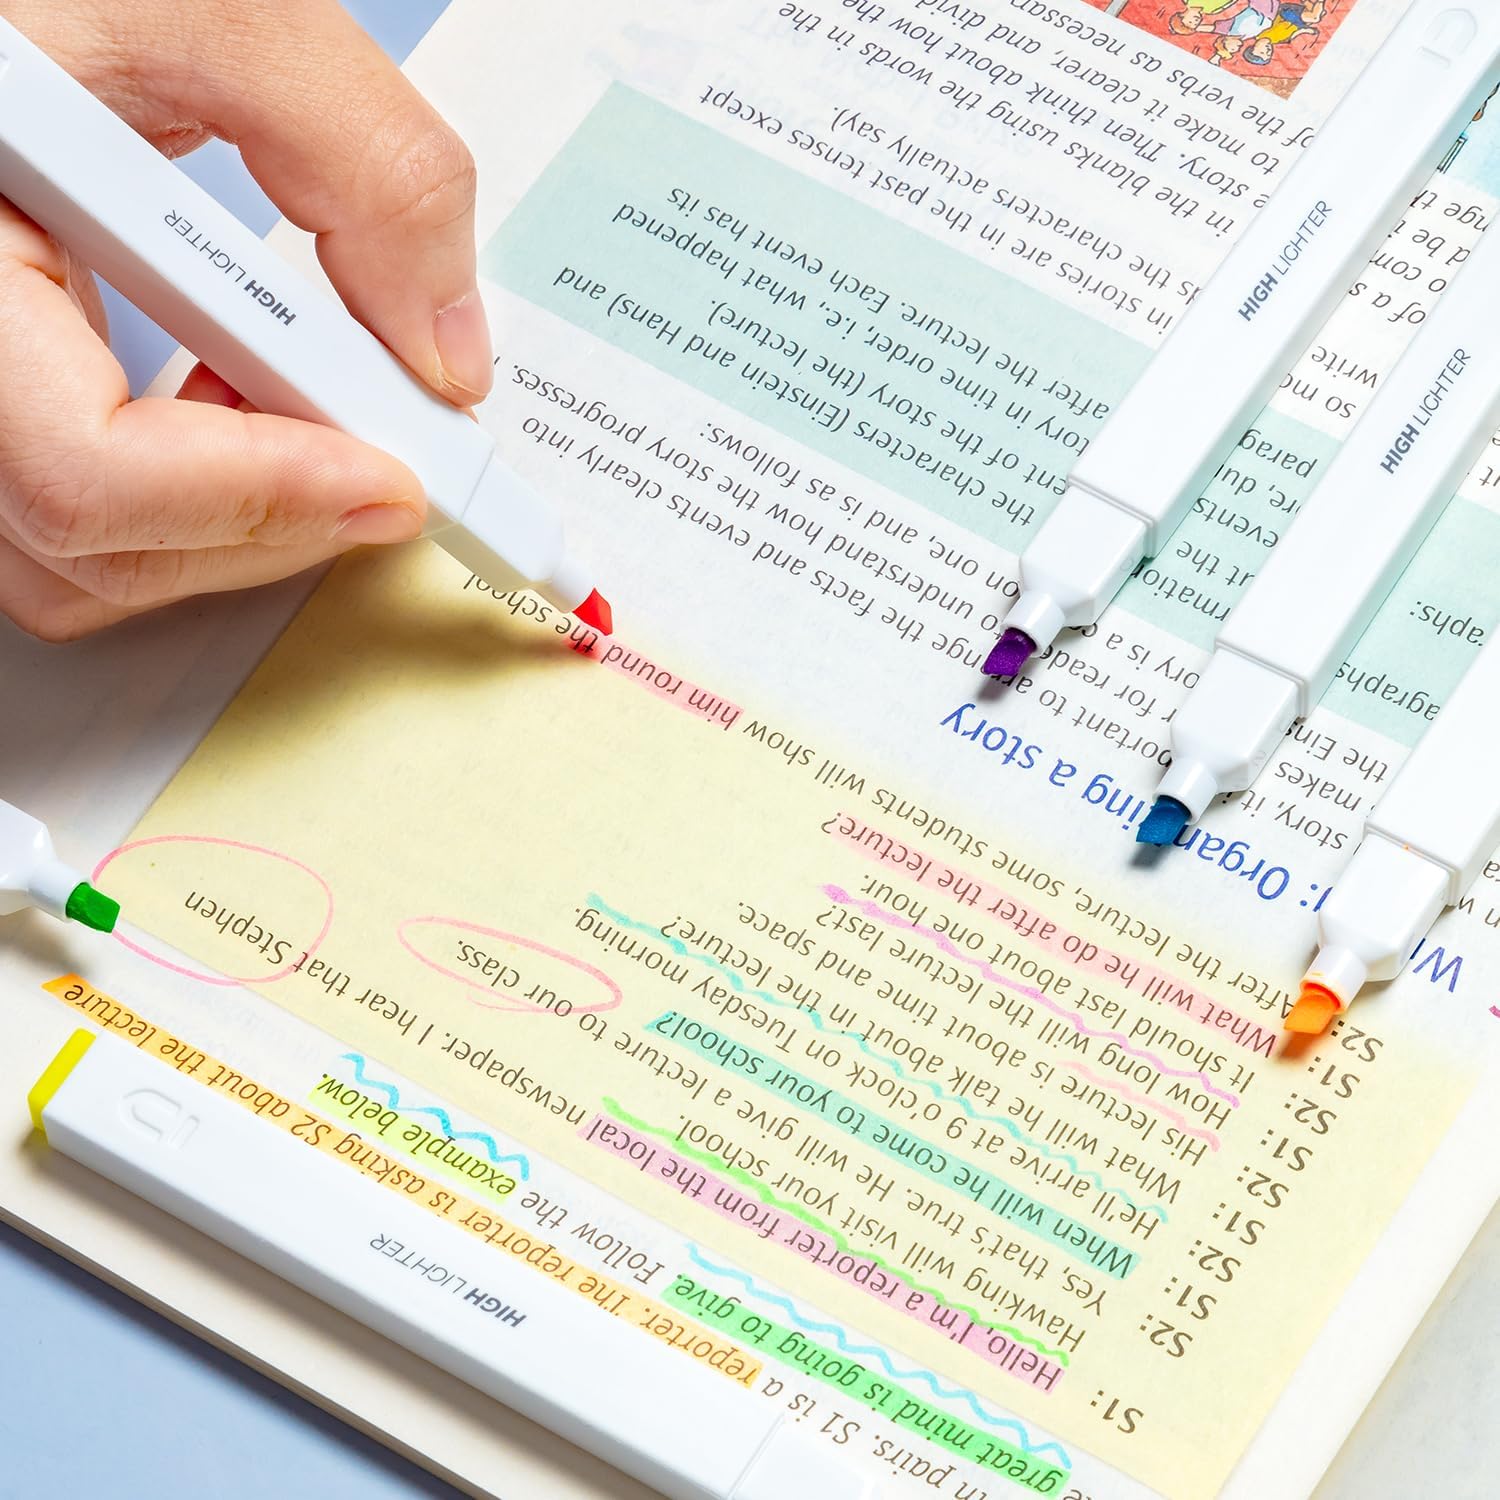 in pairs. S1 is a reporter. The reporter is asking S2 about the lecture
great mind is going to give. Follow the example below.
S1: Hello, I'm a reporter from the local newspaper. I hear that Stephen
Hawking will visit your school.
S2: Yes, that's true. He will give a lecture to our class.
S1: When will he come to your school?
S2: He'll arrive at 9 o'clock on Tuesday morning.
S1: What will he talk about in the lecture?
S2: His lecture is about time and space.
S1: How long will the lecture last?
S2: It should last about one hour.
S1: What will he do after the lecture?
S2: After the lecture, some students will show him round the school
Organizing a story
story, it is important to arrange the facts and events clearly into
makes to understand how the story progresses.
the Eins on one, and is as follows:
agraphs the characters (Einstein and Hans) and
ent of the story (the lecture).
tory in time order, i.e., what happened
after the lecture. Each event has its
in stories are in the past tenses except
the characters actually say).
in the blanks using the words in the
story. Then think about how the
to make it clearer, and divid
of the verbs as necessar
HIGH LIGHTER
HIGH LIGHTER
HIGH LIGHTER
HIGH LIGHTER